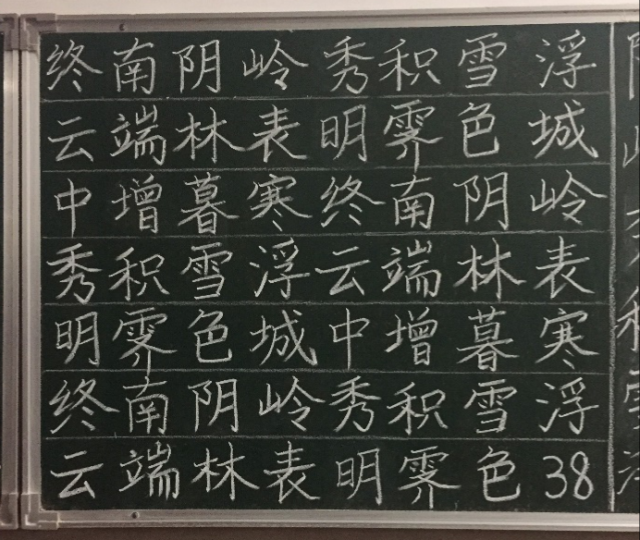 终南阴岭秀积雪浮
云端林表明霁色城
中增暮寒终南阴岭
秀积雪浮云端林表
明霁色城中增暮寒
终南阴岭秀积雪浮
云端林表明霁色38